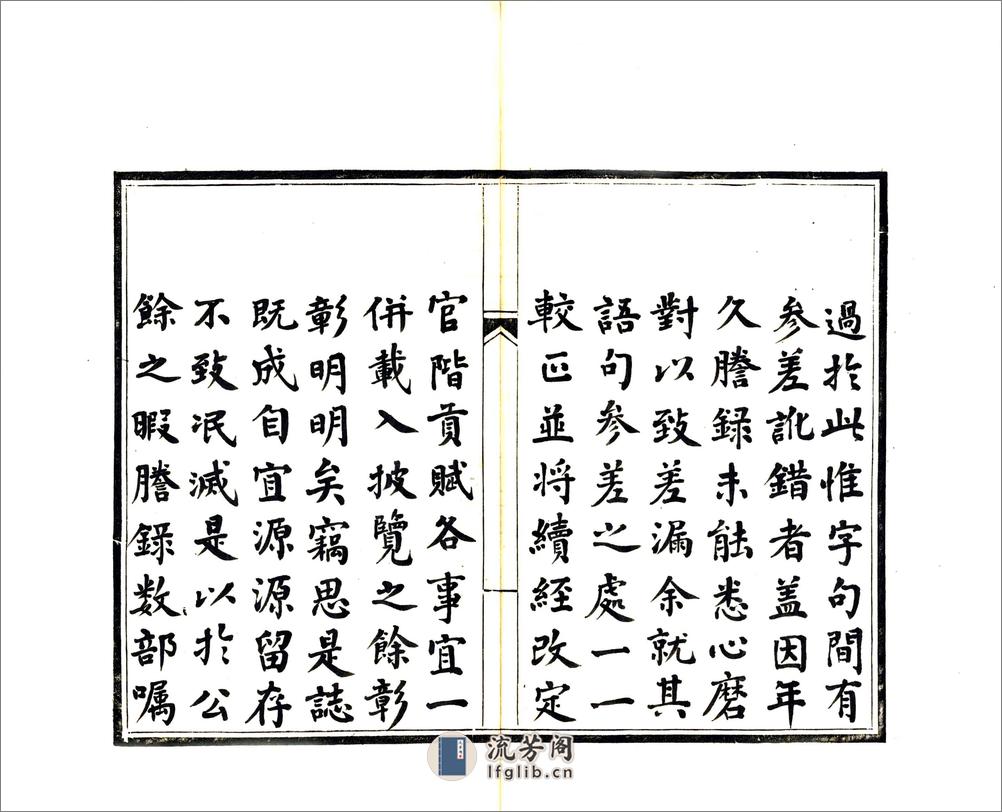 過於此惟字句間有
參差訛錯者盖因年
久謄録未能悉心磨
對以致差漏余就其
語句參差之處一一
較正並将續經改定
官階貢賦各事宜一
併載入披覽之餘彰
彰明明矣竊思是誌
既成自宜源源留存
不致泯滅是以於公
餘之暇謄錄数部嘱
流芳阁
lfglib.cn